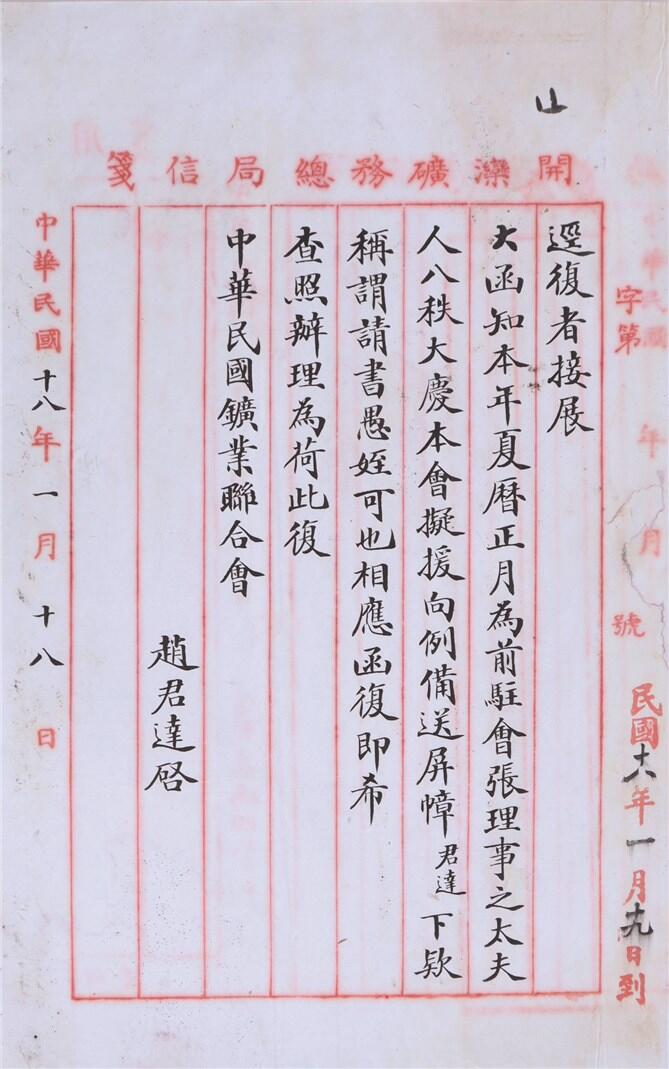 開灤礦務總局信箋
字第 號
逕復者接展
大函知本年夏曆正月為前駐會張理事之太夫
人八秩大慶本會擬援向例備送屏幛君達下欵
稱謂請書愚姪可也相應函復即希
查照辦理為荷此復
中華民國鑛業聯合會
趙君達啓
中華民國十八年一月十八日
民國十八年一月十九日到